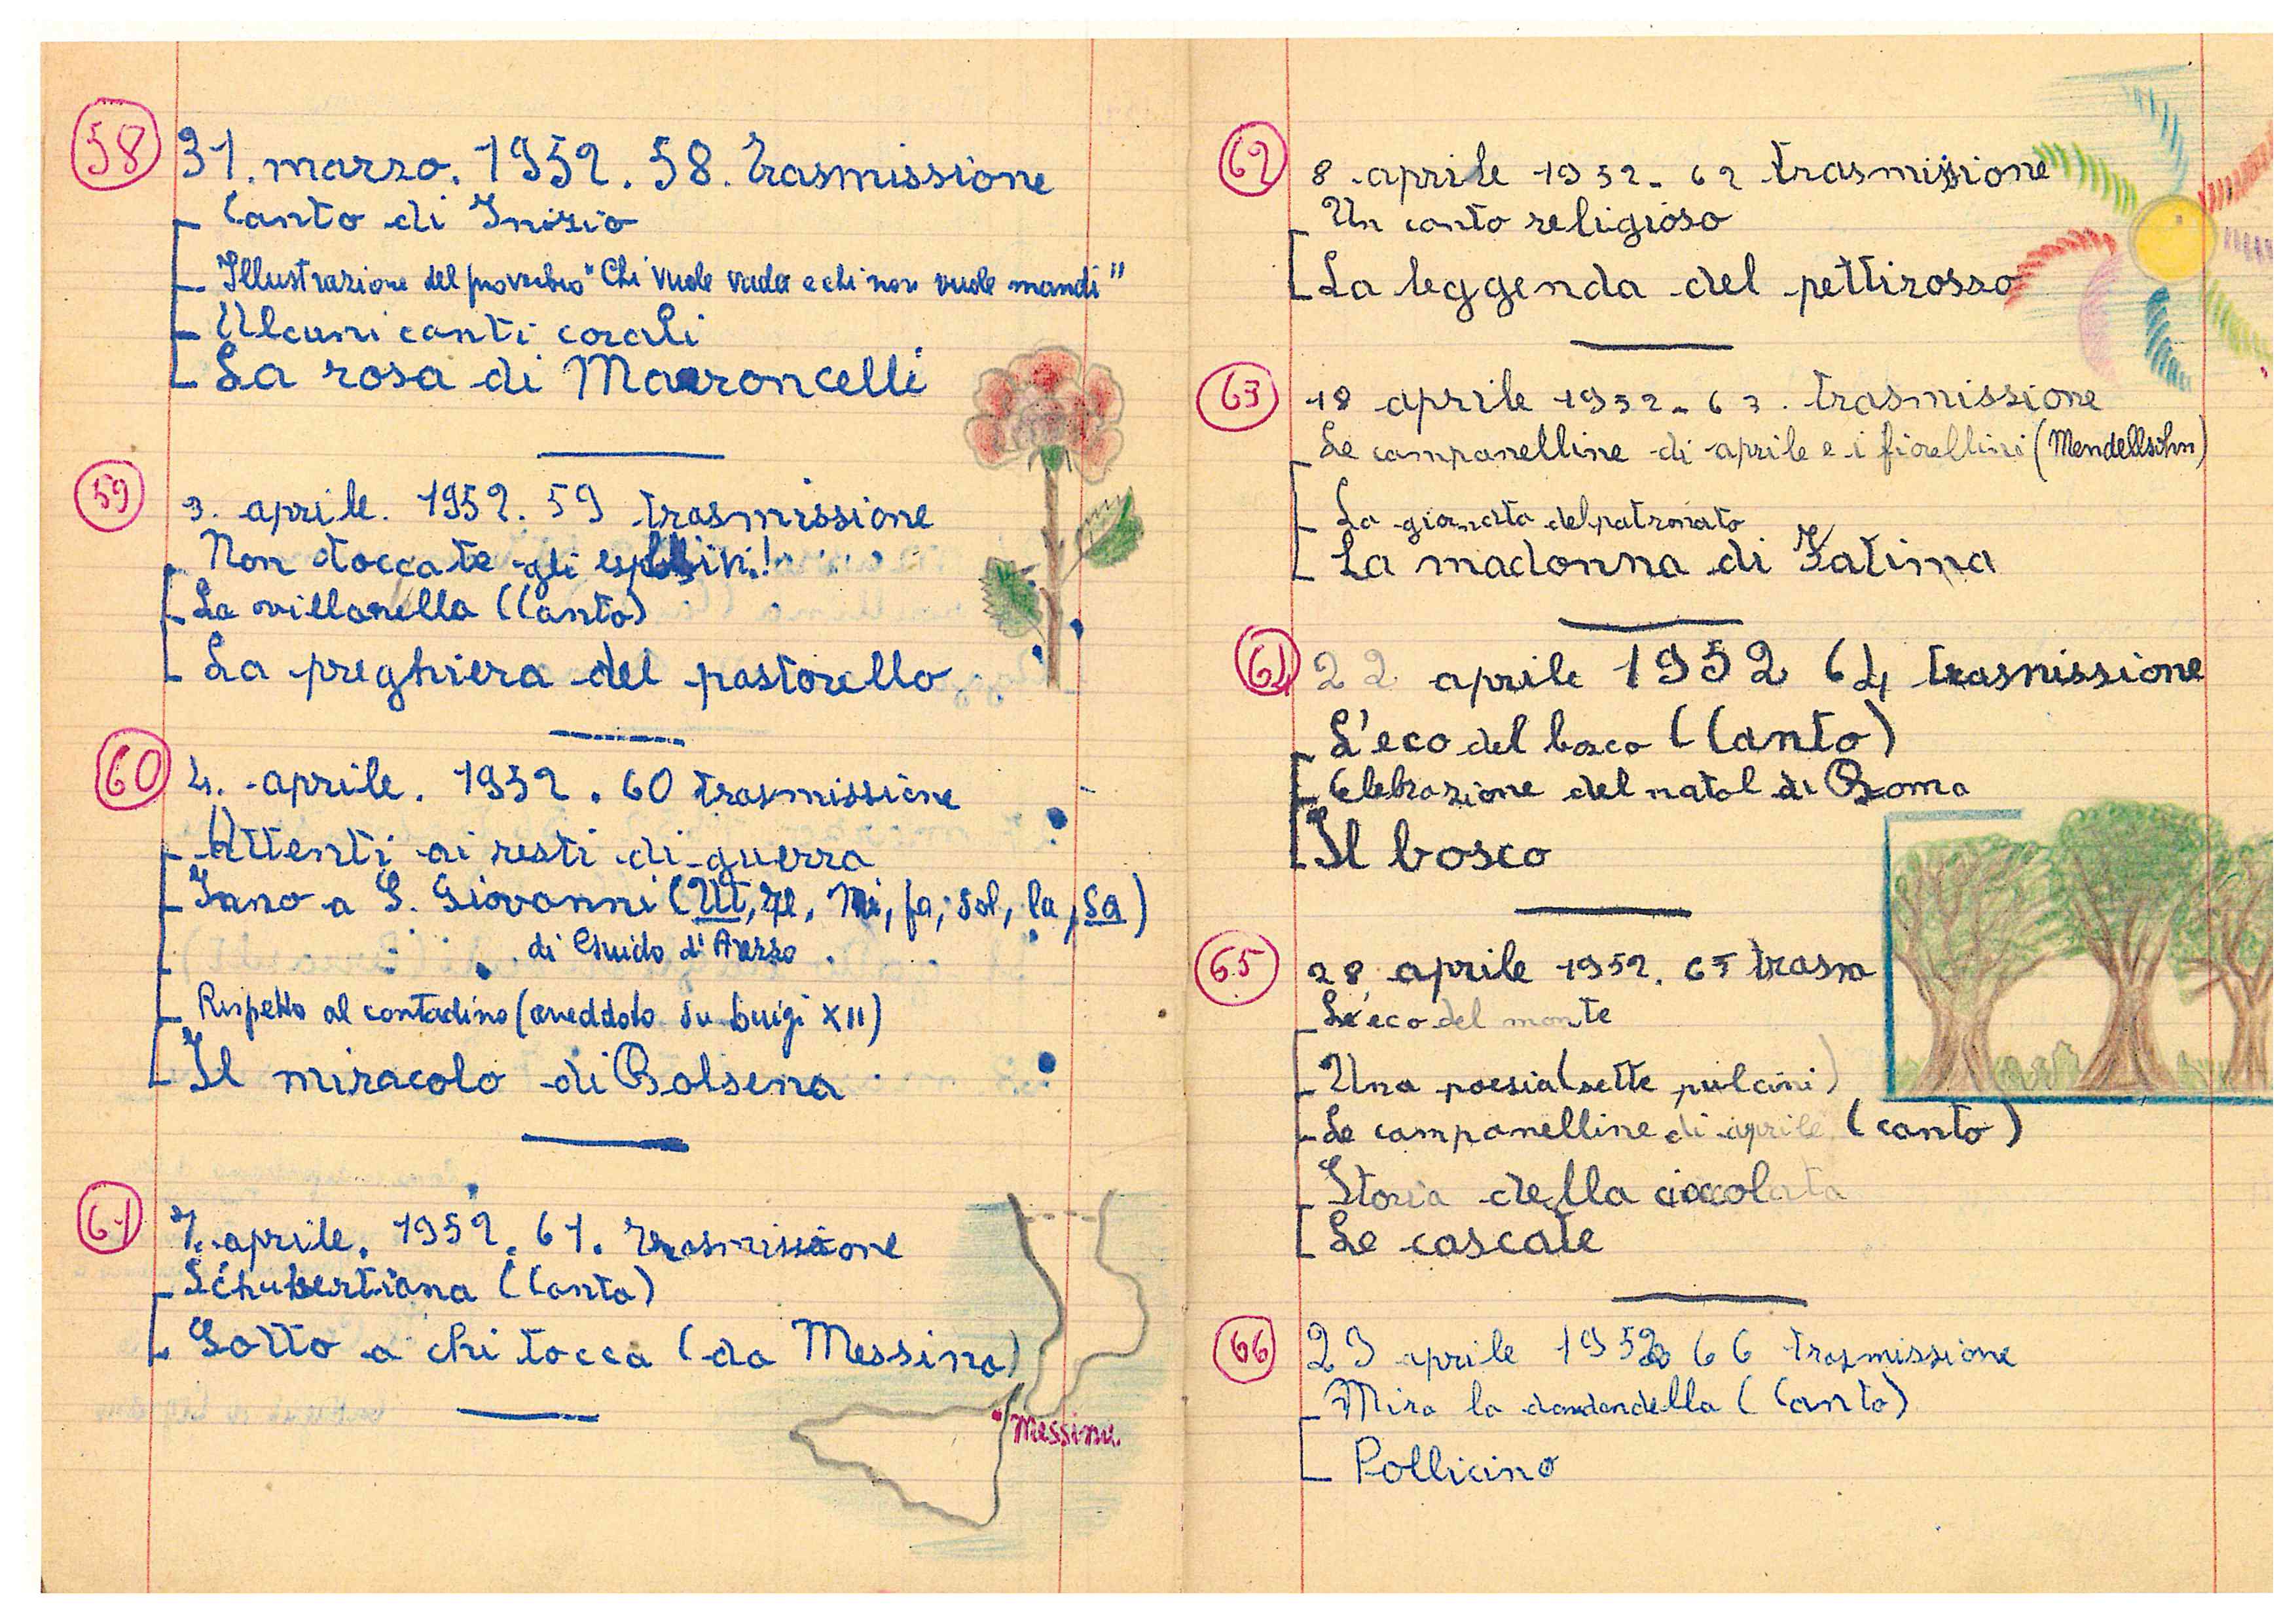 58
31. marzo. 1952. 58. trasmissione
Canto di Inizio
Illustrazione del proverbio "Chi vuole vada e chi non vuole mandi"
Alcuni canti corali
La rosa di Maroncelli
59
3. aprile. 1952. 59 trasmissione
Non toccate gli esplosivi!
La villanella (Canto)
La preghiera del pastorello
60
4. aprile. 1952. 60 trasmissione
Attenti ai resti di guerra
Inno a S. Giovanni (Ut, re, Mi, fa, sol, la, Sa)
di Guido d'Arezzo
Rispetto al contadino (aneddoto su Luigi XII)
Il miracolo di Bolsena
61
7. aprile. 1952. 61. trasmissione
Schubertiana (Canto)
Sotto a chi tocca (da Messina)
Messina
62
8 aprile 1952. 62 trasmissione
Un canto religioso
La leggenda del pettirosso
63
18 aprile 1952. 63. trasmissione
Le campanelline di aprile e i fiorellini (Mendellsohn)
La giornata del patronato
La madonna di Fatima
64
22 aprile 1952 64 trasmissione
L'eco del bosco (Canto)
Celebrazione del natal di Roma
Il bosco
65
28 aprile 1952. 65 trasm
L'eco del monte
Una poesia (sette pulcini)
Le campanelline di aprile (canto)
Storia della cioccolata
Le cascate
66
29 aprile 1952 66 trasmissione
Mira la dondondella (Canto)
Pollicino